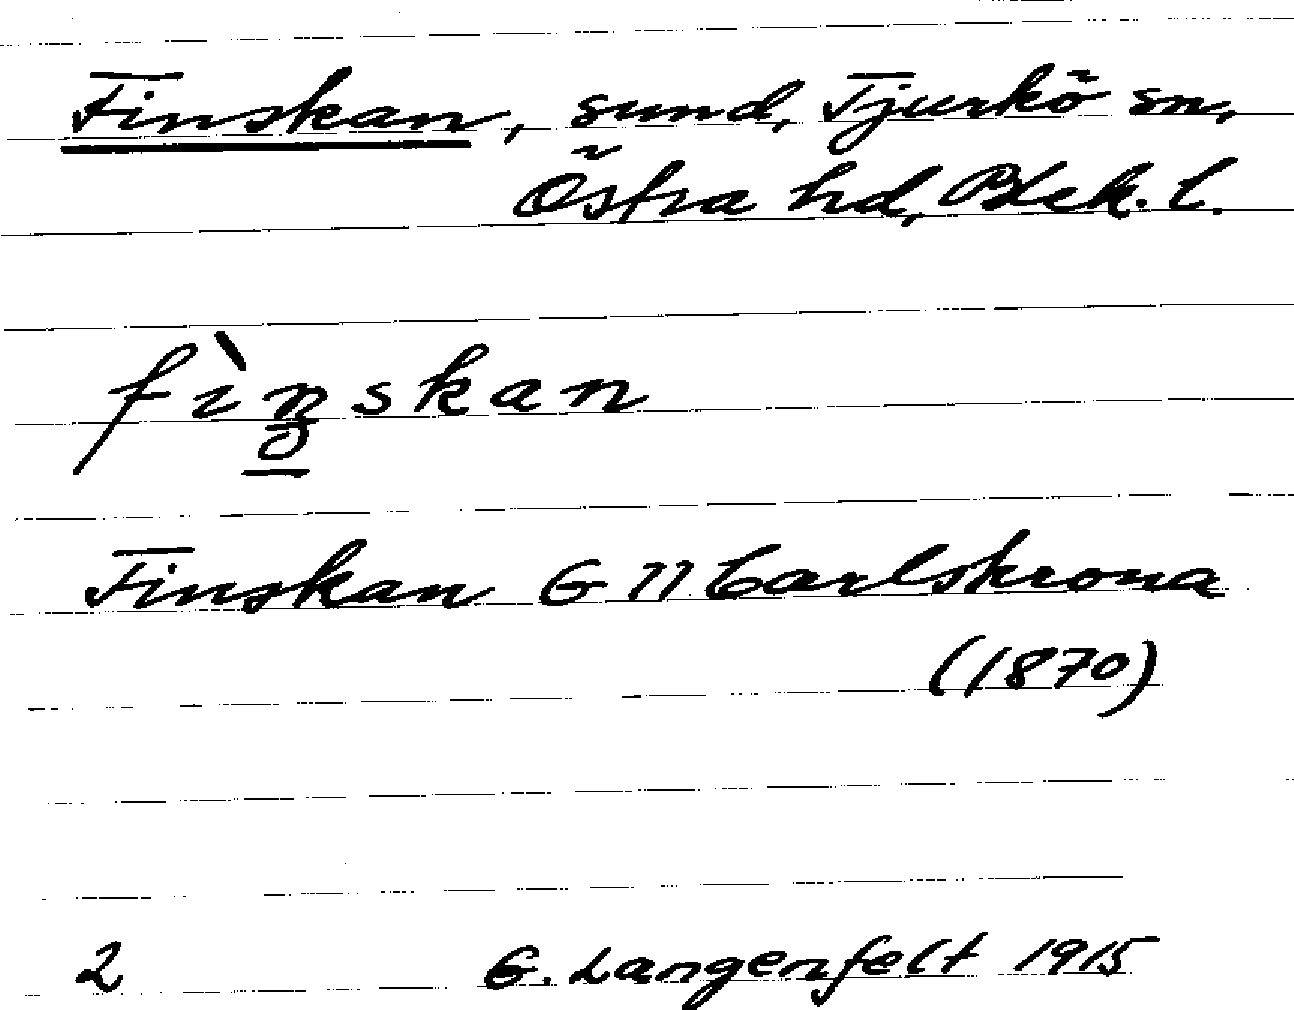 Finskan, sund, Tjurkö sn,
Östra hd, Blek. l.
fìn̠skan
Finskan G 77 Carlskrona
(1870)
2 G. Langenfelt 1915